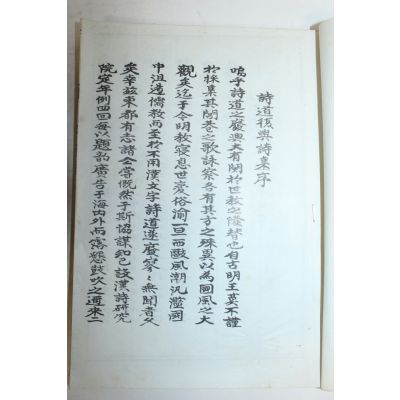 詩道復興詩集序
嗚乎詩道之廢興大有關於世教之隆替也自古明王莫不謹
於採集其閭巷之歌詠察各有其方之殊異以為國風之大
觀矣迄于今明教寢息世受俗渝一旦而歐風潮汎濫國
中沮遏儒教而至於不用漢文字詩道遂廢寥寥無聞者久
矣幸玆東都有志諸公嘗慨然于斯協謀知己設漢詩研究
院定年例四回每以題韵廣告于海內外而寓慇鼓吹之邇來二